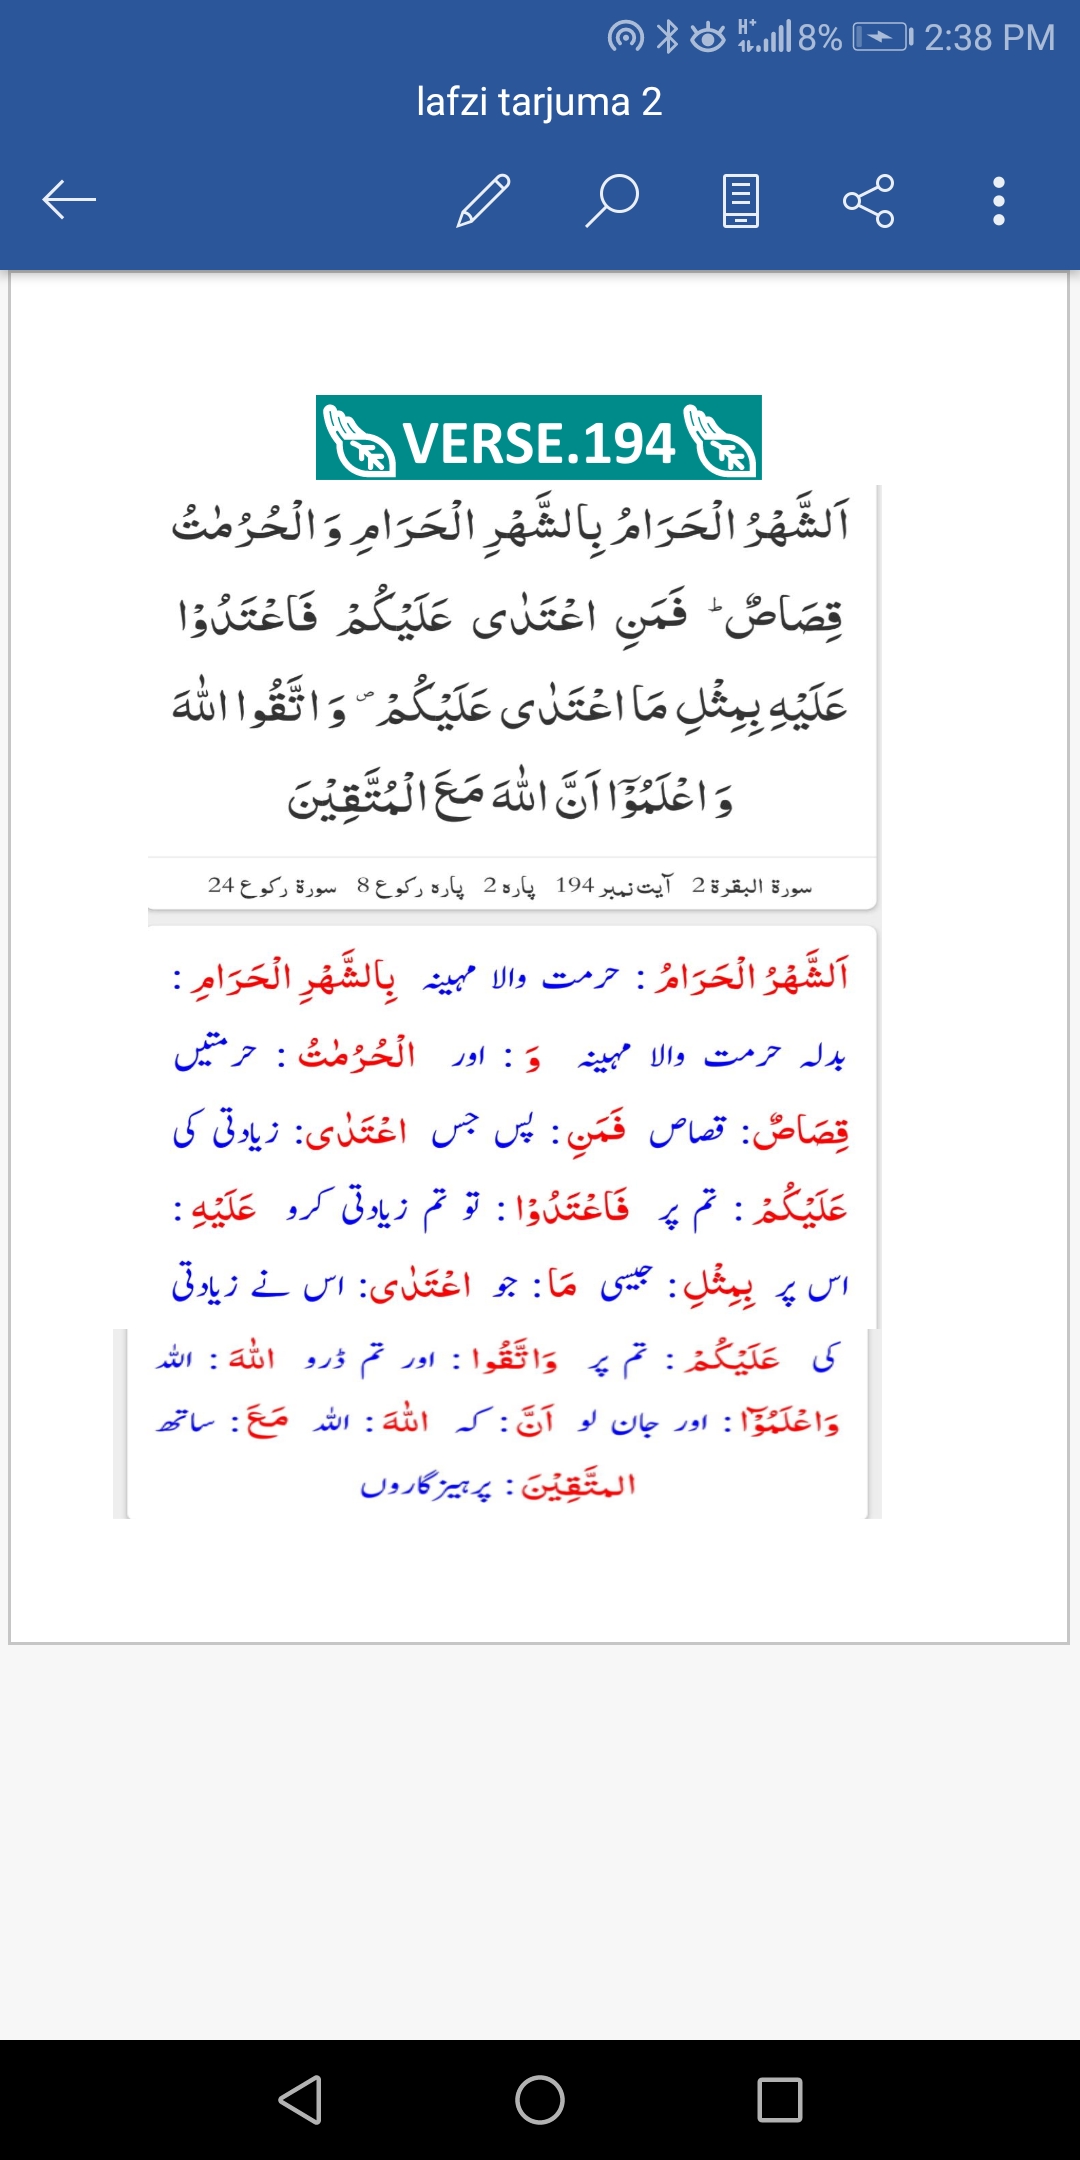 H+ 8% 2:38 PM
lafzi tarjuma 2
VERSE.194
اَلشَّهْرُ الْحَرَامُ بِالشَّهْرِ الْحَرَامِ وَ الْحُرُمٰتُ
قِصَاصٌ ؕ فَمَنِ اعْتَدٰی عَلَیْكُمْ فَاعْتَدُوْا
عَلَیْهِ بِمِثْلِ مَا اعْتَدٰی عَلَیْكُمْ ۪ وَ اتَّقُوا اللّٰهَ
وَ اعْلَمُوْۤا اَنَّ اللّٰهَ مَعَ الْمُتَّقِیْنَ
سورۃ البقرۃ 2 آیت نمبر 194 پارہ 2 پارہ رکوع 8 سورۃ رکوع 24
اَلشَّهْرُ الْحَرَامُ : حرمت والا مہینہ بِالشَّهْرِ الْحَرَامِ :
بدلہ حرمت والا مہینہ وَ : اور الْحُرُمٰتُ : حرمتیں
قِصَاصٌ : قصاص فَمَنِ : پس جس اعْتَدٰی : زیادتی کی
عَلَیْكُمْ : تم پر فَاعْتَدُوْا : تو تم زیادتی کرو عَلَیْهِ :
اس پر بِمِثْلِ : جیسی مَا : جو اعْتَدٰی : اس نے زیادتی
کی عَلَیْكُمْ : تم پر وَاتَّقُوا : اور تم ڈرو اللّٰهَ : اللہ
وَاعْلَمُوْٓا : اور جان لو اَنَّ : کہ اللّٰهَ : اللہ مَعَ : ساتھ
المتَّقِیْنَ : پرہیزگاروں